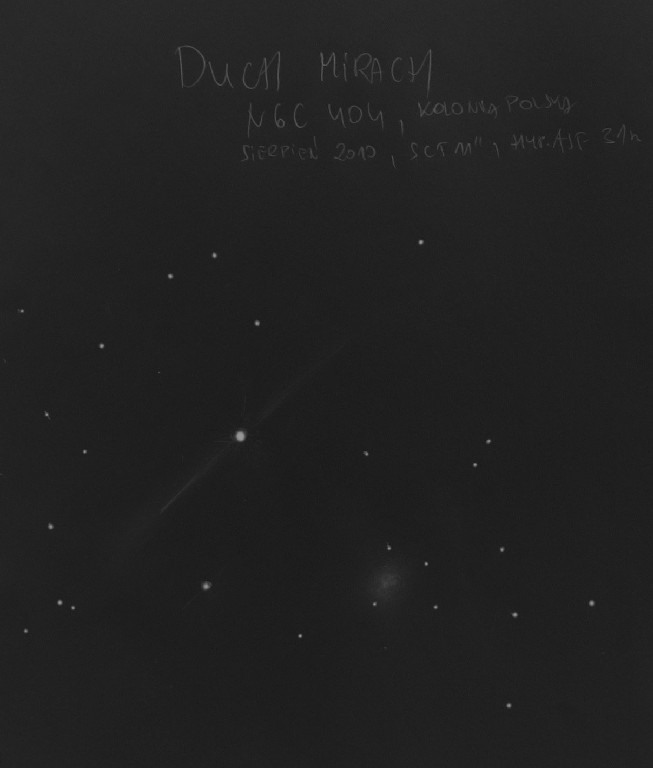 DUCH MIRACH
NGC 404, KOLONIA POLSKA
SIERPIEŃ 2010, SCT 11", HYP. ASF 31n